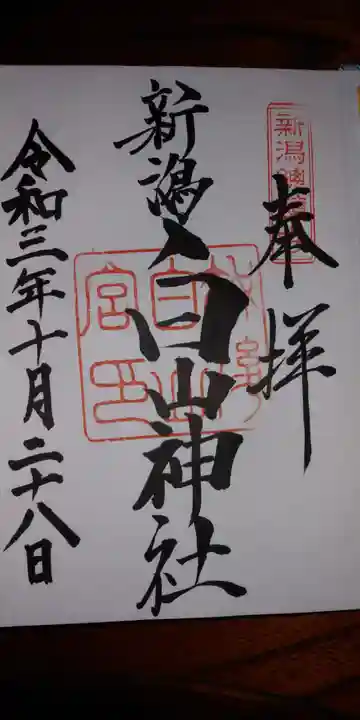 新潟總
奉拝
新潟白山神社
白山
宮印
令和三年十月二十八日